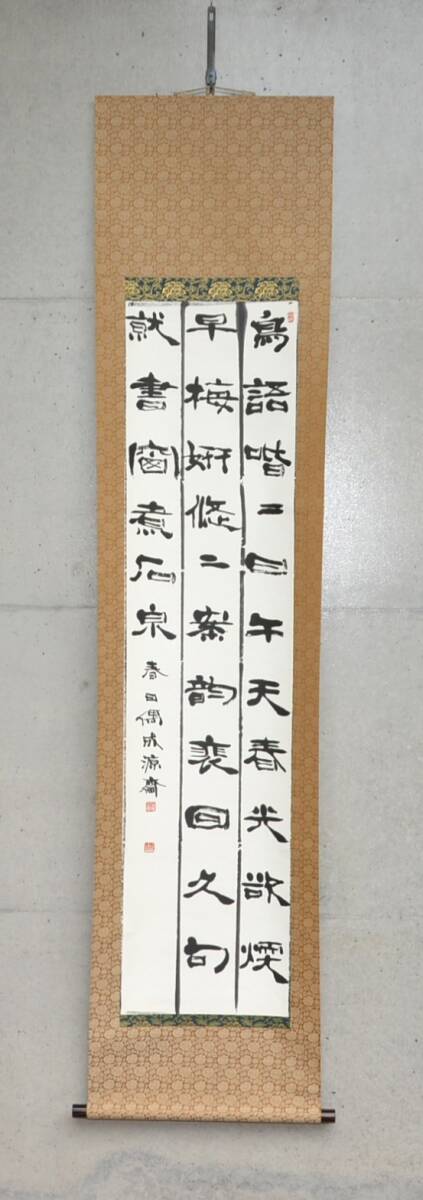 鳥語喈二日午天春光欲煙
早梅妍悠二索韵裵回久句
就書窗煮石泉
春日偶成源齋